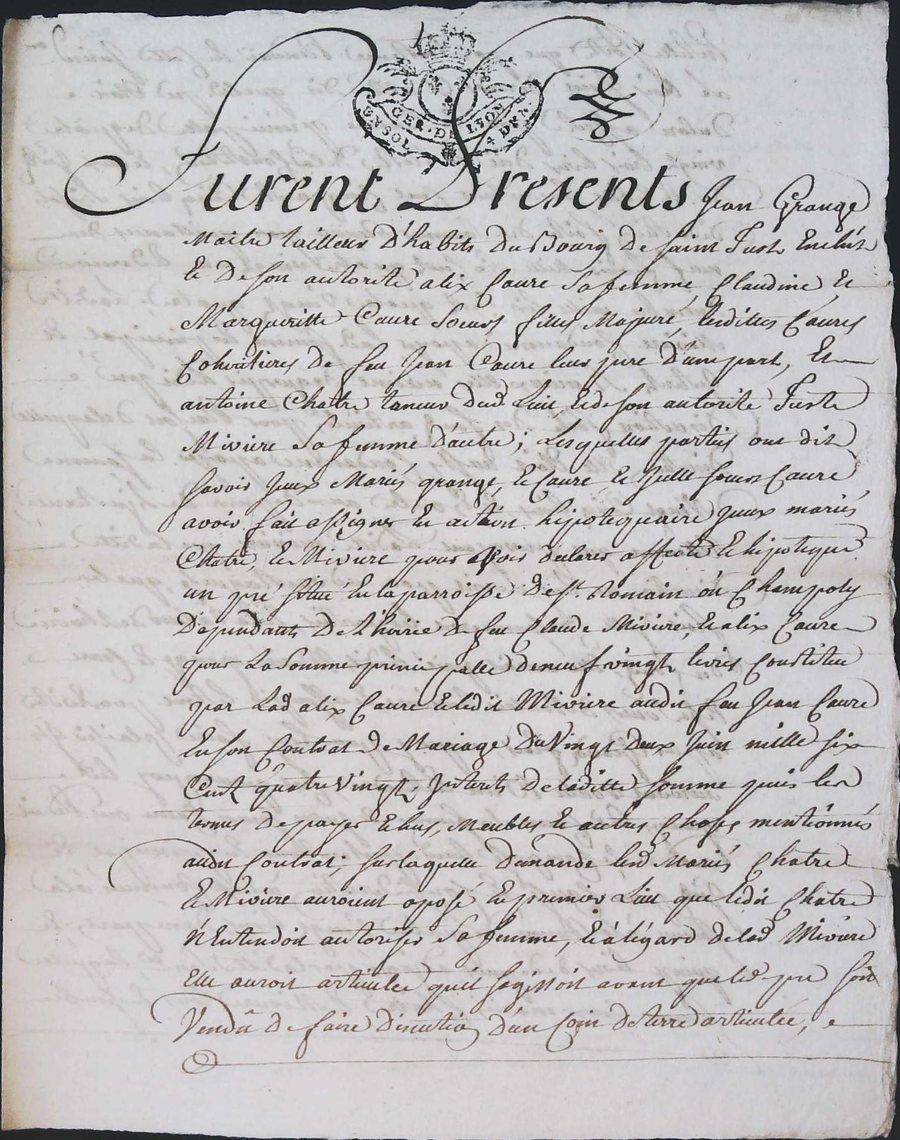 GEN. DE LYON
UN SOL 4 DEN.
Furent Presents Jean Grange
Maitre tailleur D'habits Du Bourg De saint Just En
Et De son autorité alix Caure Sa femme Claudine, Et
Margueritte Caure Soeurs filles Majure, lesdittes Caures
Coheritieres de feu Jean Caure leur pere D'une part, Et
antoine Chatre taneur dud. Lieu, Et de son autorité Juste
Miviere Sa femme D'autre; Lesquelles parties ont dit
savoir Iceux Mariés grange, Et Caure Et Icelle soeurs Caure
avoir fait assigner En action hipotequaire Iceux mariés
Chatre, Et Miviere pour voir declarer affecté Et hipotequé
un pré situé En la parroisse de St. Romain Champoly
Dependants De L'hoirie De feu Claude Miviere, Et alix Caure
pour La Somme principalle de neuf vingt livres Constitué
par Lad. alix Caure Et ledit Miviere audit feu Jean Caure
En son Contrat de Mariage Du Vingt deux Juin mille six
Cent quatre vingt, Interets De laditte Somme puis les
termes De payer Echus, Meubles Et autres Choses mentionnés
audit Contrat; sur laquelle Demande lesd. Mariés Chatre
Et Miviere auroient oposé En premier Lieu que ledit Chatre
N'Entendoit autoriser Sa femme, Et à L'égard de lad. Miviere
Elle auroit articulée qu'il s'agissoit avant que led. pré soit
Vendû de faire Discution D'un Coin De terre articulée, e